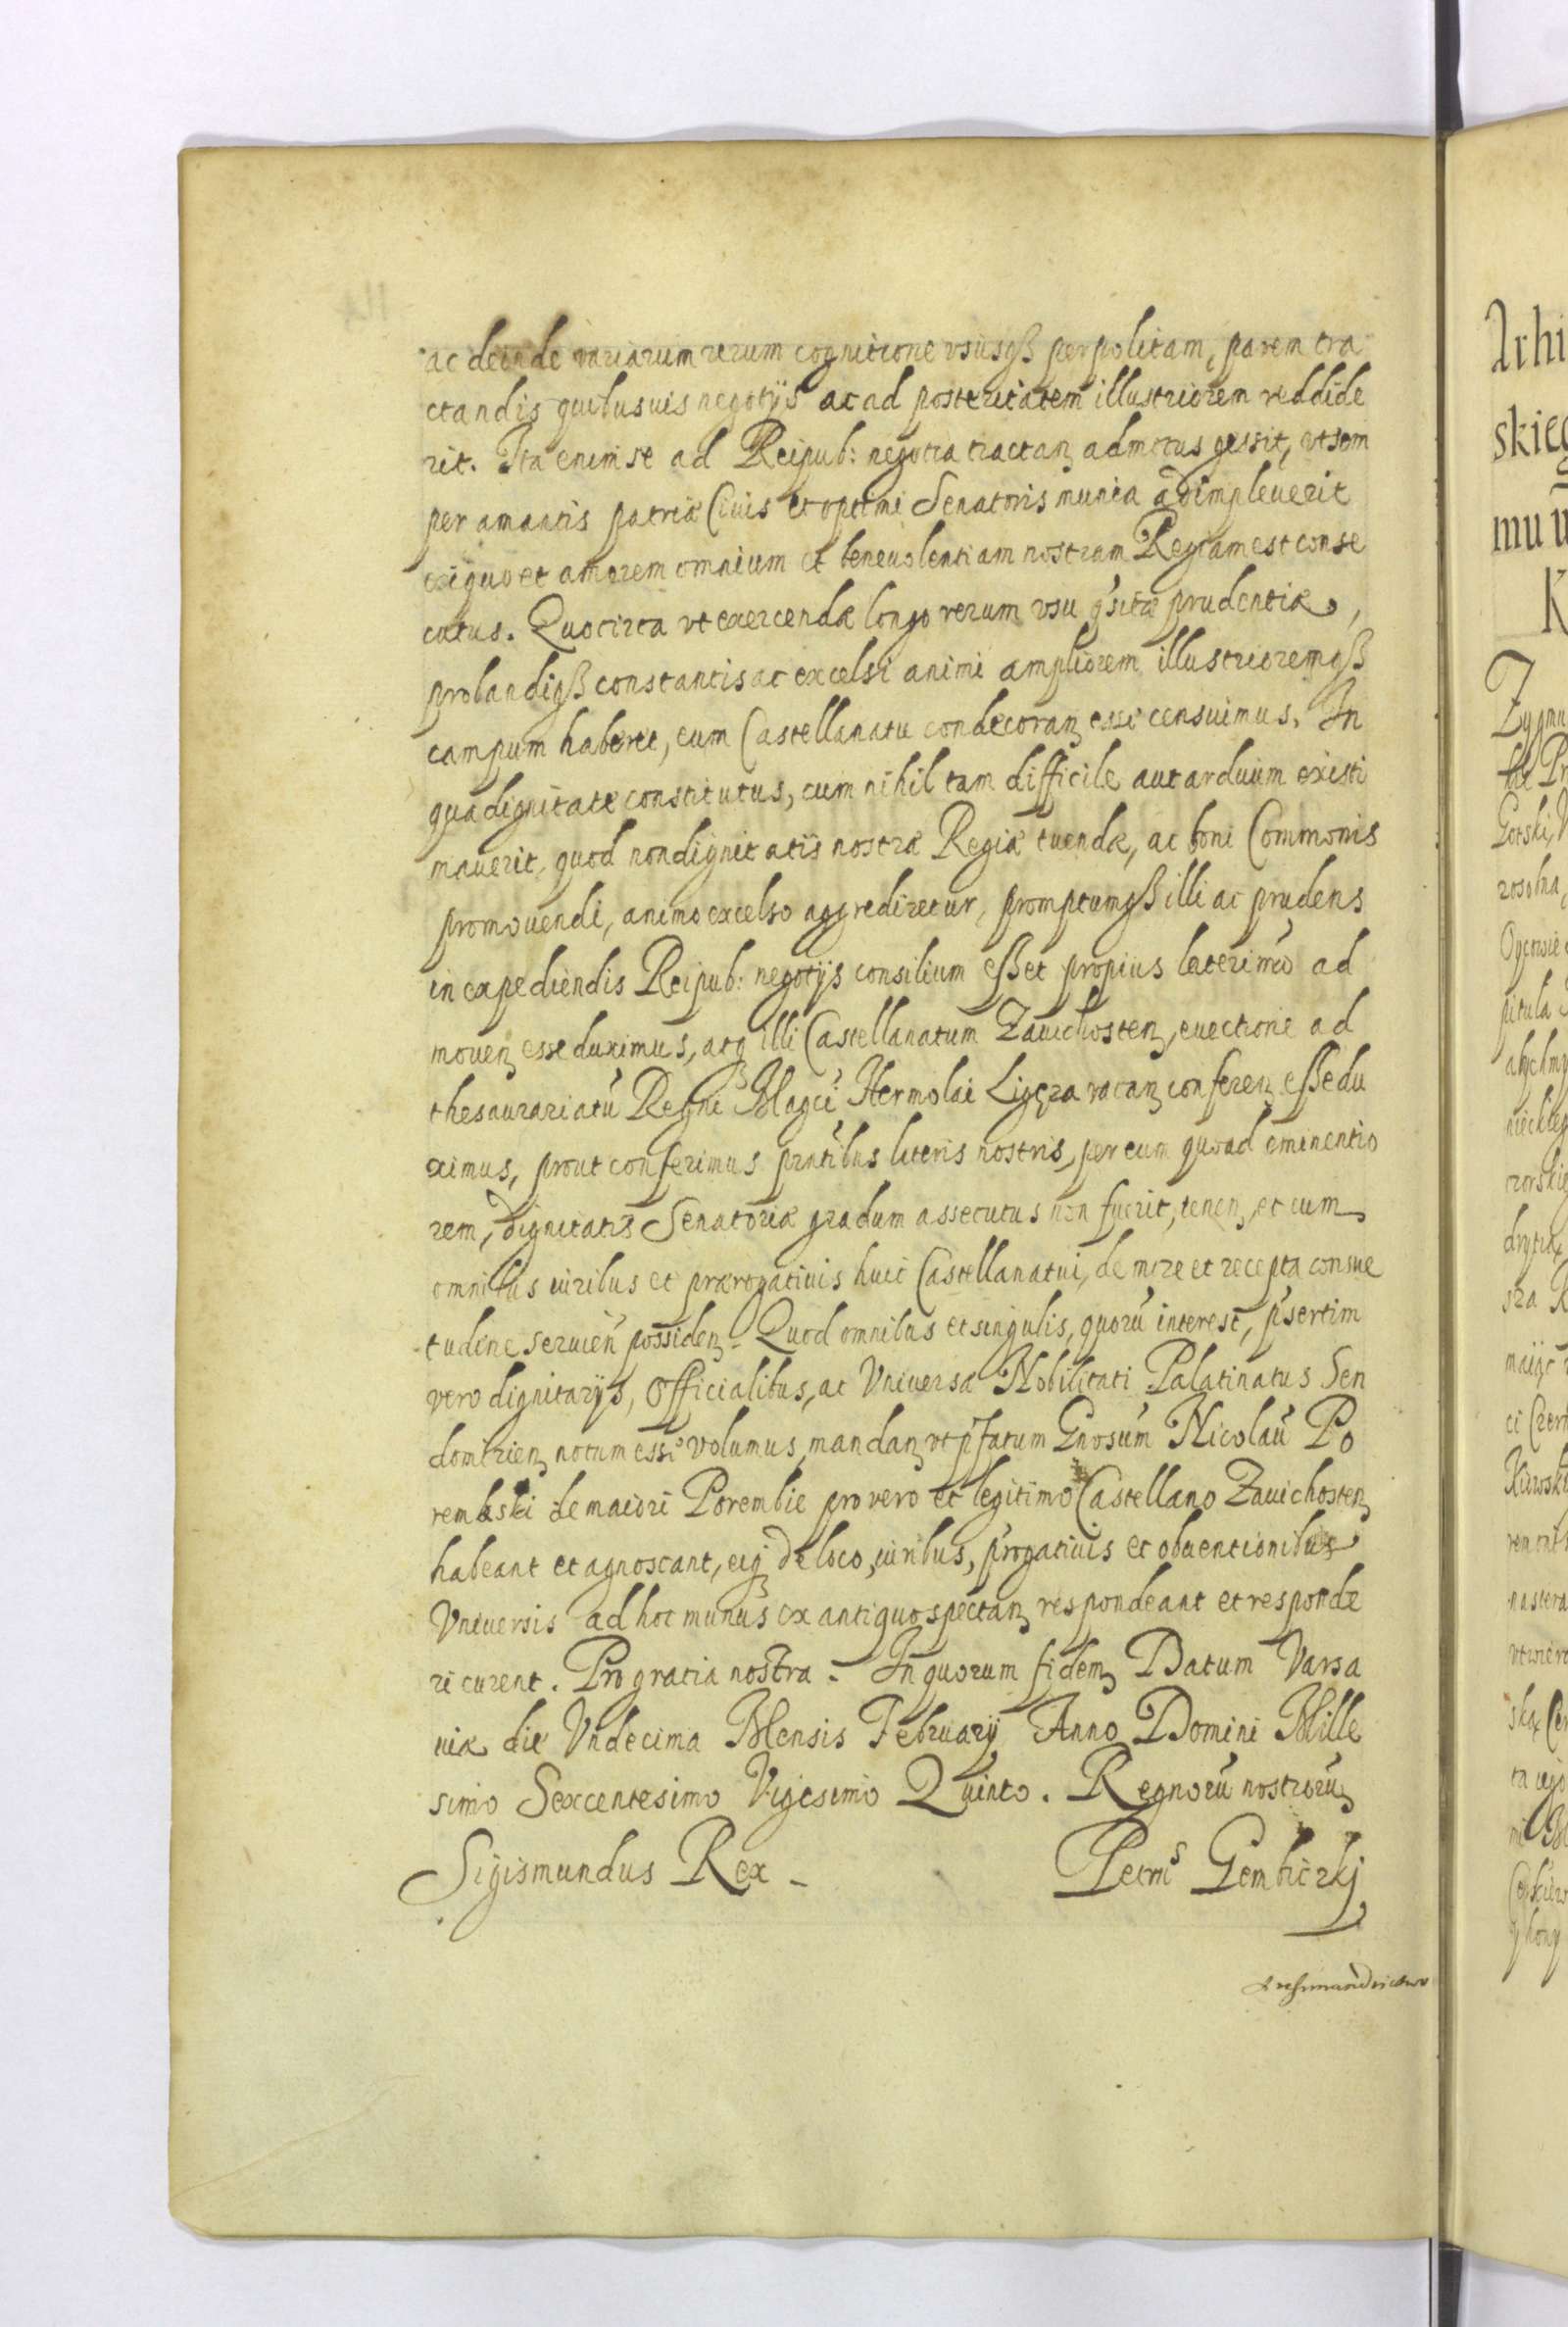 ac deinde variarum rerum cognitione vsusqß perpolitam, parem tra
ctandis quibusuis negotijs ac ad posteritatem illustriorem reddide
rit. Ita enim se ad Reipub: negotia tractan admotus gessit, vt sem
per amantis patriæ Ciuis et optimi Senatoris munia adimpleuerit
exiquo et amorem omnium et beneuolentiam nostram Regiam est conse
cutus. Quocirca vt exercendæ longo rerum vsu qsitæ prudentiæ,
probandiqß constantis ac excelsi animi ampliorem illustrioremqß
campum haberet, eum Castellanatu condecoran esse censuimus. In
qua dignitate constitutus, cum nihil tam difficile aut arduum existi
mauerit, quod non dignitatis nostræ Regiæ tuendæ, ac boni Commonis
promouendi, animo excelso aggrediretur, promptumqß illi ac prudens
in expediendis Reipub: negotijs consilium eßet propius lateri nrõ ad
mouen esse duximus, atq illi Castellanatum Zauichosten, euectione ad
thesaurariatũ Regni Magci Hermolai Ligęza vacan conferen eße du
ximus, prout conferimus pntibus literis nostris, per eum quoad eminentio
rem, dignitatis Senatoriæ gradum assecutus non fuerit, tenen, et cum
omnibus iuribus et prærogatiuis huic Castellanatui, de more et recepta consue
tudine seruien possiden. Quod omnibus et singulis, quorũ interest, psertim
vero dignitarijs, Officialibus, ac Vniuersæ Nobilitati Palatinatus Sen
domirien notum esse volumus, mandan vt pfatum Gnosum Nicolaũ Po
rembski de maiori Porembie pro vero et legitimo Castellano Zauichosten
habeant et agnoscant, eiq de loco, iuribus, progatiuis et obuentionibus
Vniuersis ad hoc munus ex antiquo spectan respondeant et responde
ri curent. Pro gratia nostra. In quorum fidem Datum Varsa
uiæ die Vndecima Mensis February Anno Domini Mille
simo Sexcentesimo Vigesimo Quinto. Regnorũ nostrorũ
Sigismundus Rex Petrus Gembiczkj
Arhi
skieg
mu
K
Zygmu
Gorski,